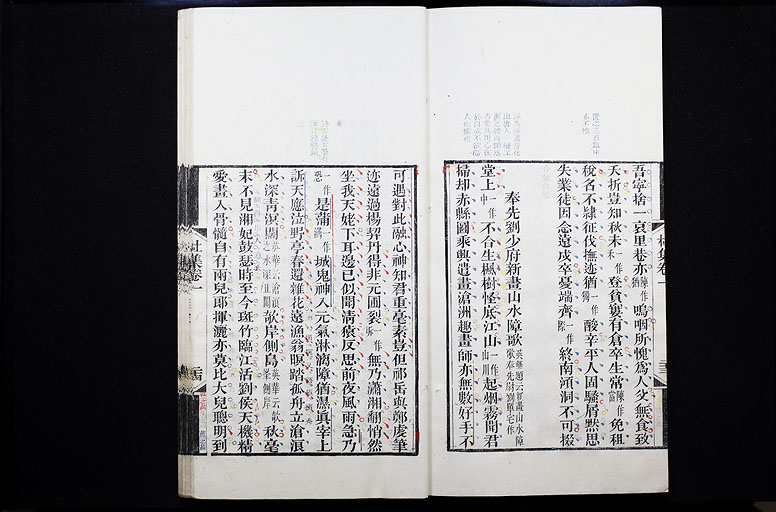 吾寧捨一哀里巷亦猶陳作嗚咽所愧為人父無食致
夭折豈知秋未一作禾登貧窶有倉卒生常陳作當免租
稅名不隸征伐撫迹猶一作獨酸辛平人固騷屑默思
失業徒因念遠戍卒憂端齊一作際終南澒洞不可掇
奉先劉少府新畫山水障歌英華題云新畫山水障歌奉先尉劉單宅作
堂上一作中不合生楓樹怪底江山一作山川起烟霧聞君
掃却赤縣圖乘興遣畫滄洲趣畫師亦無數好手不
可遇對此融心神知君重毫素豈但祁岳與鄭虔筆
迹遠過楊契丹得非元圃裂一作拆無乃瀟湘翻悄然
坐我天姥下耳邊已似聞清猿反思前夜風雨急乃
恐一作是蒲一作滿城鬼神入元氣淋漓障猶濕真宰上
訴天應泣野亭春還雜花遠漁翁暝踏孤舟立滄浪
水深青溟闊欹岸側島秋毫
末不見湘妃鼓瑟時至今斑竹臨江活劉侯天機精
愛畫入骨髓自有兩兒郎揮灑亦莫比大兒聰明到
杜集卷一
杜集卷一